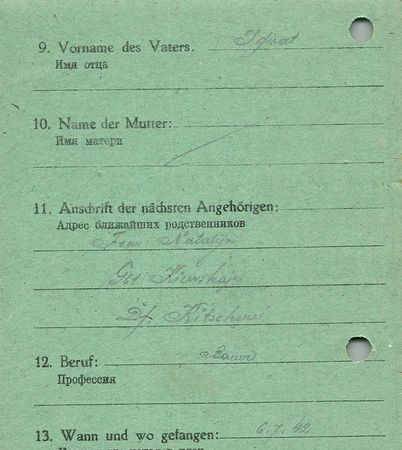 9. Vorname des Vaters. Ignat
Имя отца
10. Name der Mutter:
Имя матери
11. Anschrift der nächsten Angehörigen:
Адрес ближайших родственников
Frau Natalija
Gbt
Df.
12. Beruf: Bauer
Профессия
13. Wann und wo gefangen: 6.7.42